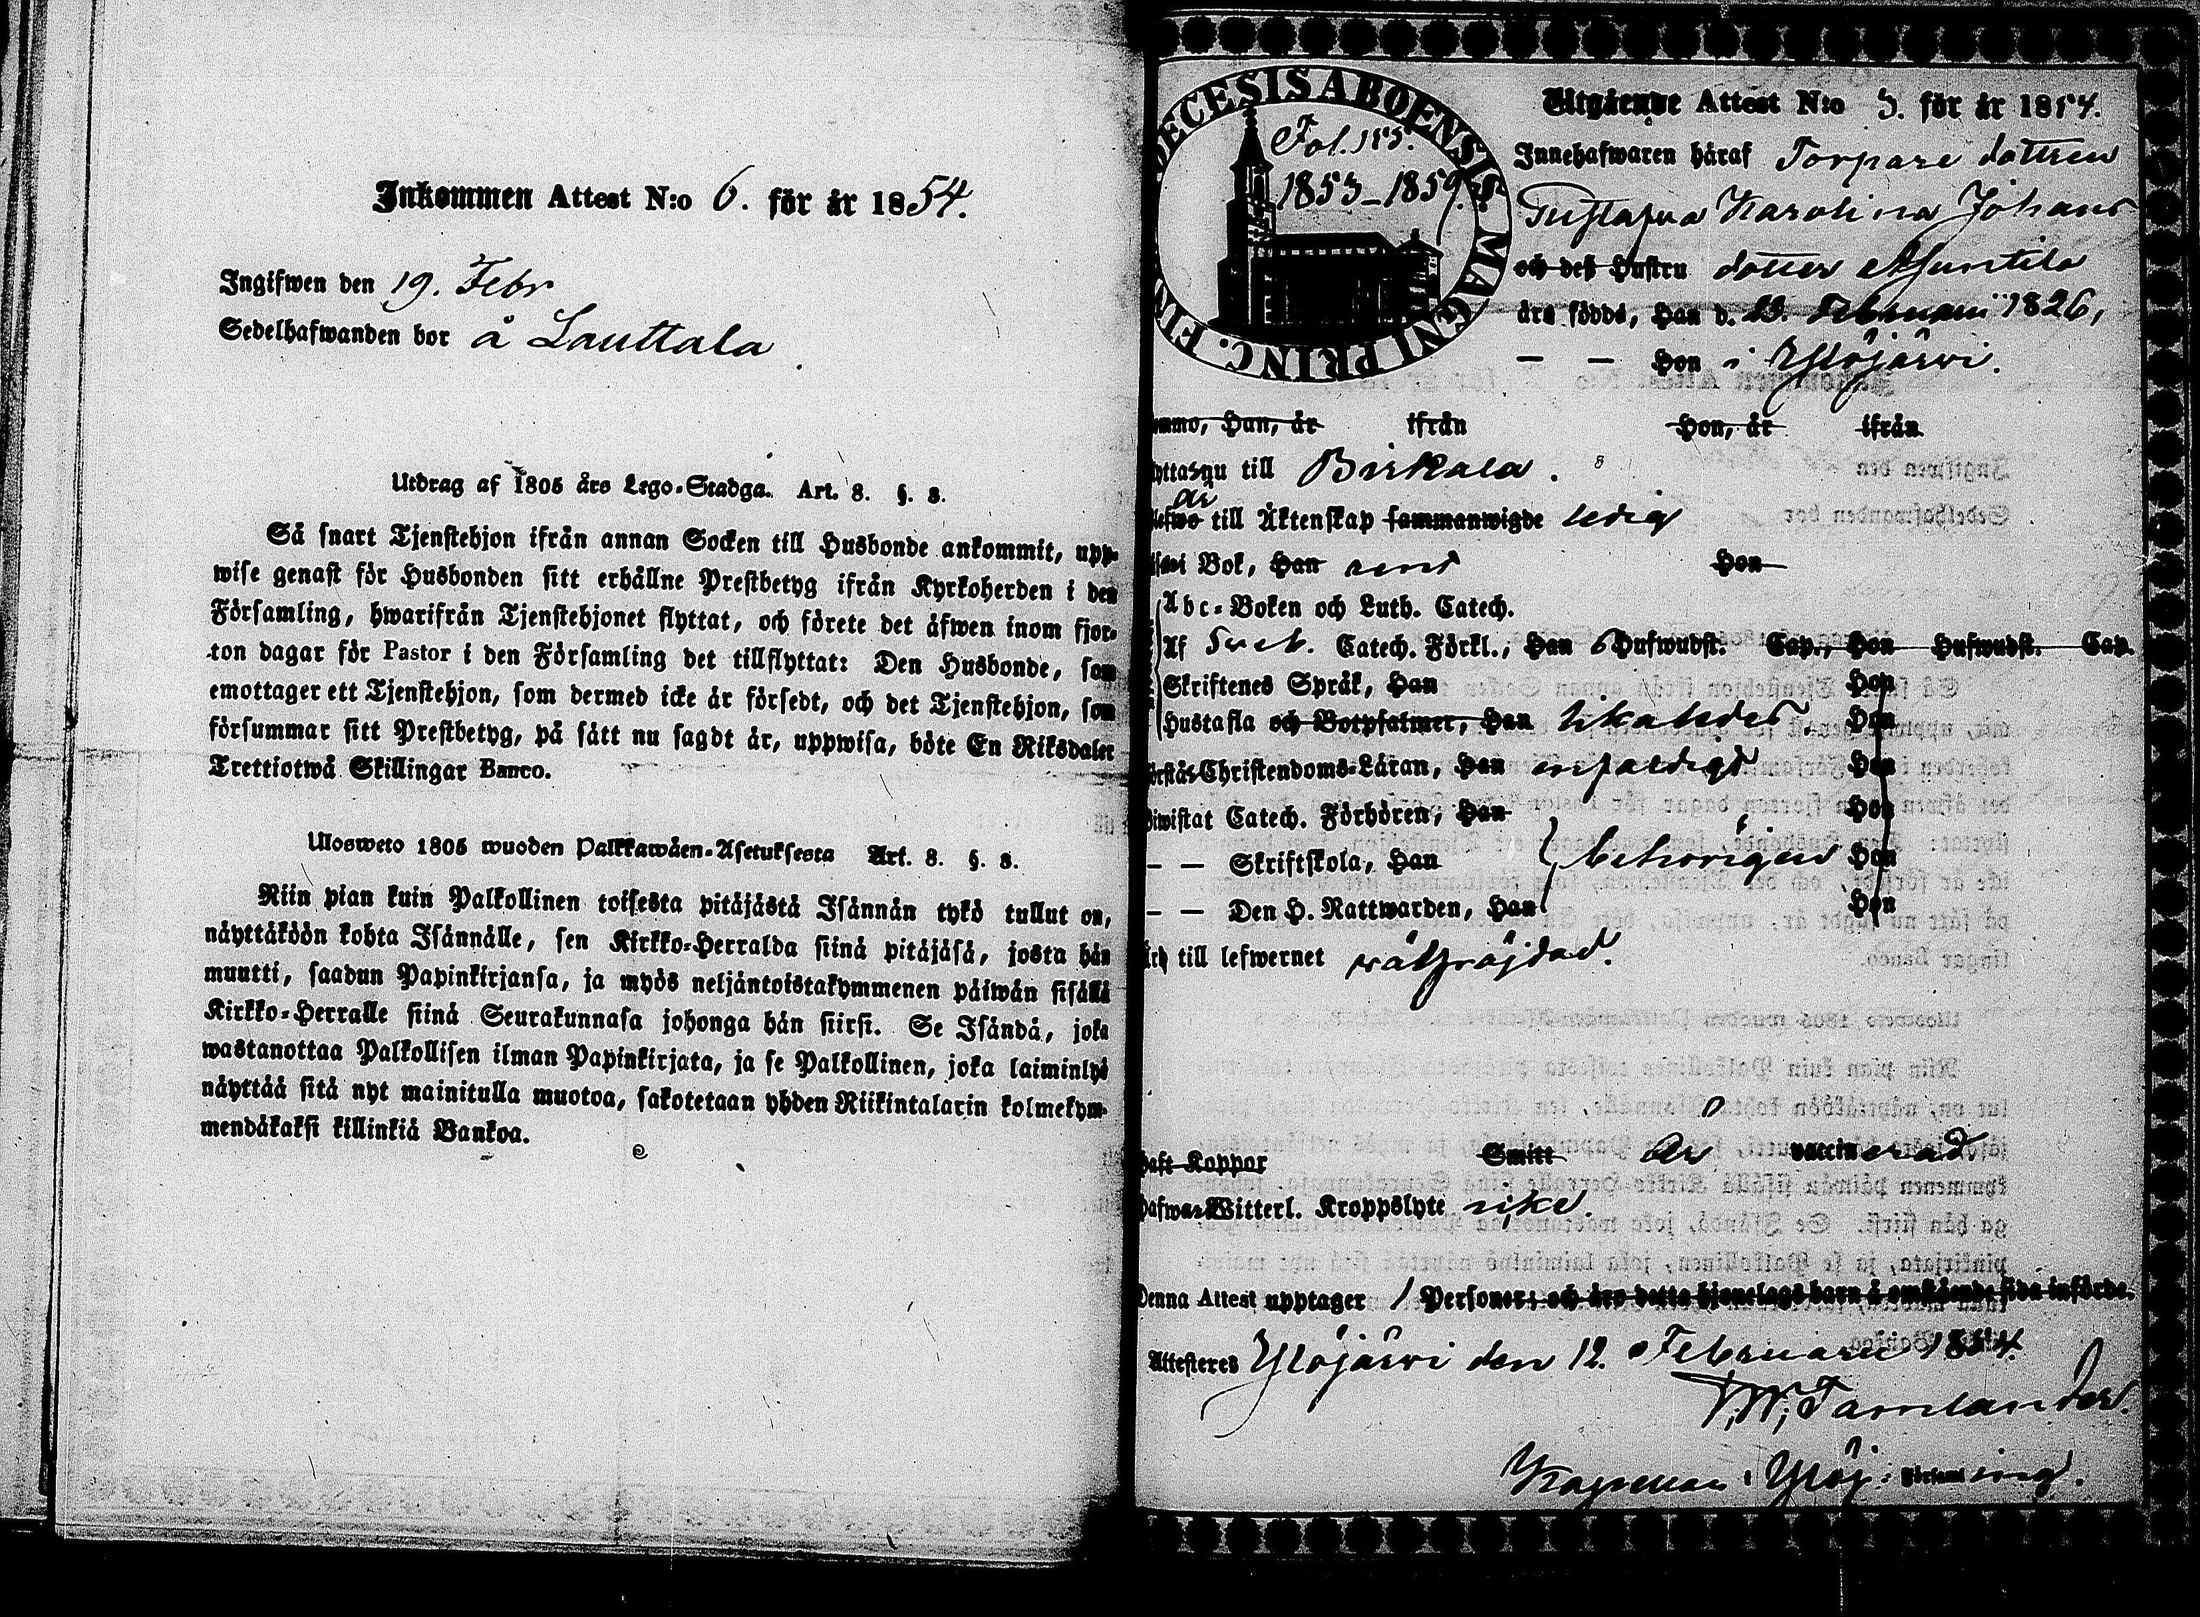 Inkommen Attest N:o 6. för år 1854.
Ingifwen den 19. Febr
Sedelhafwanden bor å Lauttala
Utdrag af 1805 års Lego-Stadga. Art. 8. §. 8.
Så snart Tjenstehjon ifrån annan Socken till Husbonde ankommit, upp-
wise genast för Husbonden sitt erhållne Prestbetyg ifrån Kyrkoherden i den
Församling, hwarifrån Tjenstehjonet flyttat, och förete det äfwen inom fjor-
ton dagar för Pastor i den Församling det tillflyttat: Den Husbonde, som
emottager ett Tjenstehjon, som dermed icke är försedt, och det Tjenstehjon, som
försummar sitt Prestbetyg, på sätt nu sagdt är, uppwisa, böte En Riksdaler
Trettiotwå Skillingar Banco.
Ulosweto 1805 wuoden Palkkawäen-Asetuksesta Art. 8. §. 8.
Niin pian kuin Palkollinen toisesta pitäjästä Isännän tykö tullut on,
näyttäköön kohta Isännälle, sen Kirkko-Herralda siinä pitäjäsä, josta hän
muutti, saadun Papinkirjansa, ja myös neljäntoistakymmenen päiwän sisällä
Kirkko-Herralle siinä Seurakunnasa johonga hän siirsi. Se Isändä, joka
wastanottaa Palkollisen ilman Papinkirjata, ja se Palkollinen, joka laiminlyö
näyttää sitä nyt mainitulla muotoa, sakotetaan yhden Riikintalarin kolmekym-
mendäkaksi killinkiä Bankoa.
DECESIS ABOENSIS MAGNI PRINC. FIN
Fol. 155.
1853-1859.
Utgående Attest N:o 3. för år 1854.
Innehafwaren häraf Torpare dottren
Gustafva Karolina Johans
och deß Hustru dotter Muntila
äro födde, Han d. 23. Februari 1826,
— — Hon i Ylöjärvi.
ommo, Han, år ifrån Hon, år ifrån
yttas nu till Birkala.
är
lefwo till Äktenskap sammanwigde ledig
i Bok, Han rent Hon
Abc-Boken och Luth. Catech.
Af Sveb. Catech. Förkl., Han 6 Hufwudst. Cap., Hon Hufwudst. Cap.
Skriftenes Språk, Han Hon
Hustafla och Botpsalmer, Han likaledes, Hon
örstår Christendoms-Läran, Han enfaldigt Hon
Biwistat Catech. Förhören, Han Hon
— — Skriftskola, Han behörigen Hon
— — Den H. Nattwarden, Han Hon
Är till lefwernet wälfräjdad.
Haft Koppor Smitt Är vaccinerad.
Hafwa Witterl. Kroppslyte icke.
Denna Attest upptager 1 Personer; och äro detta hjonelags barn å omstående sida införde.
Attesteres Ylöjärvi den 12. Februarii 1854.
Tamlander.
Kapellan i Ylöj: Församling.